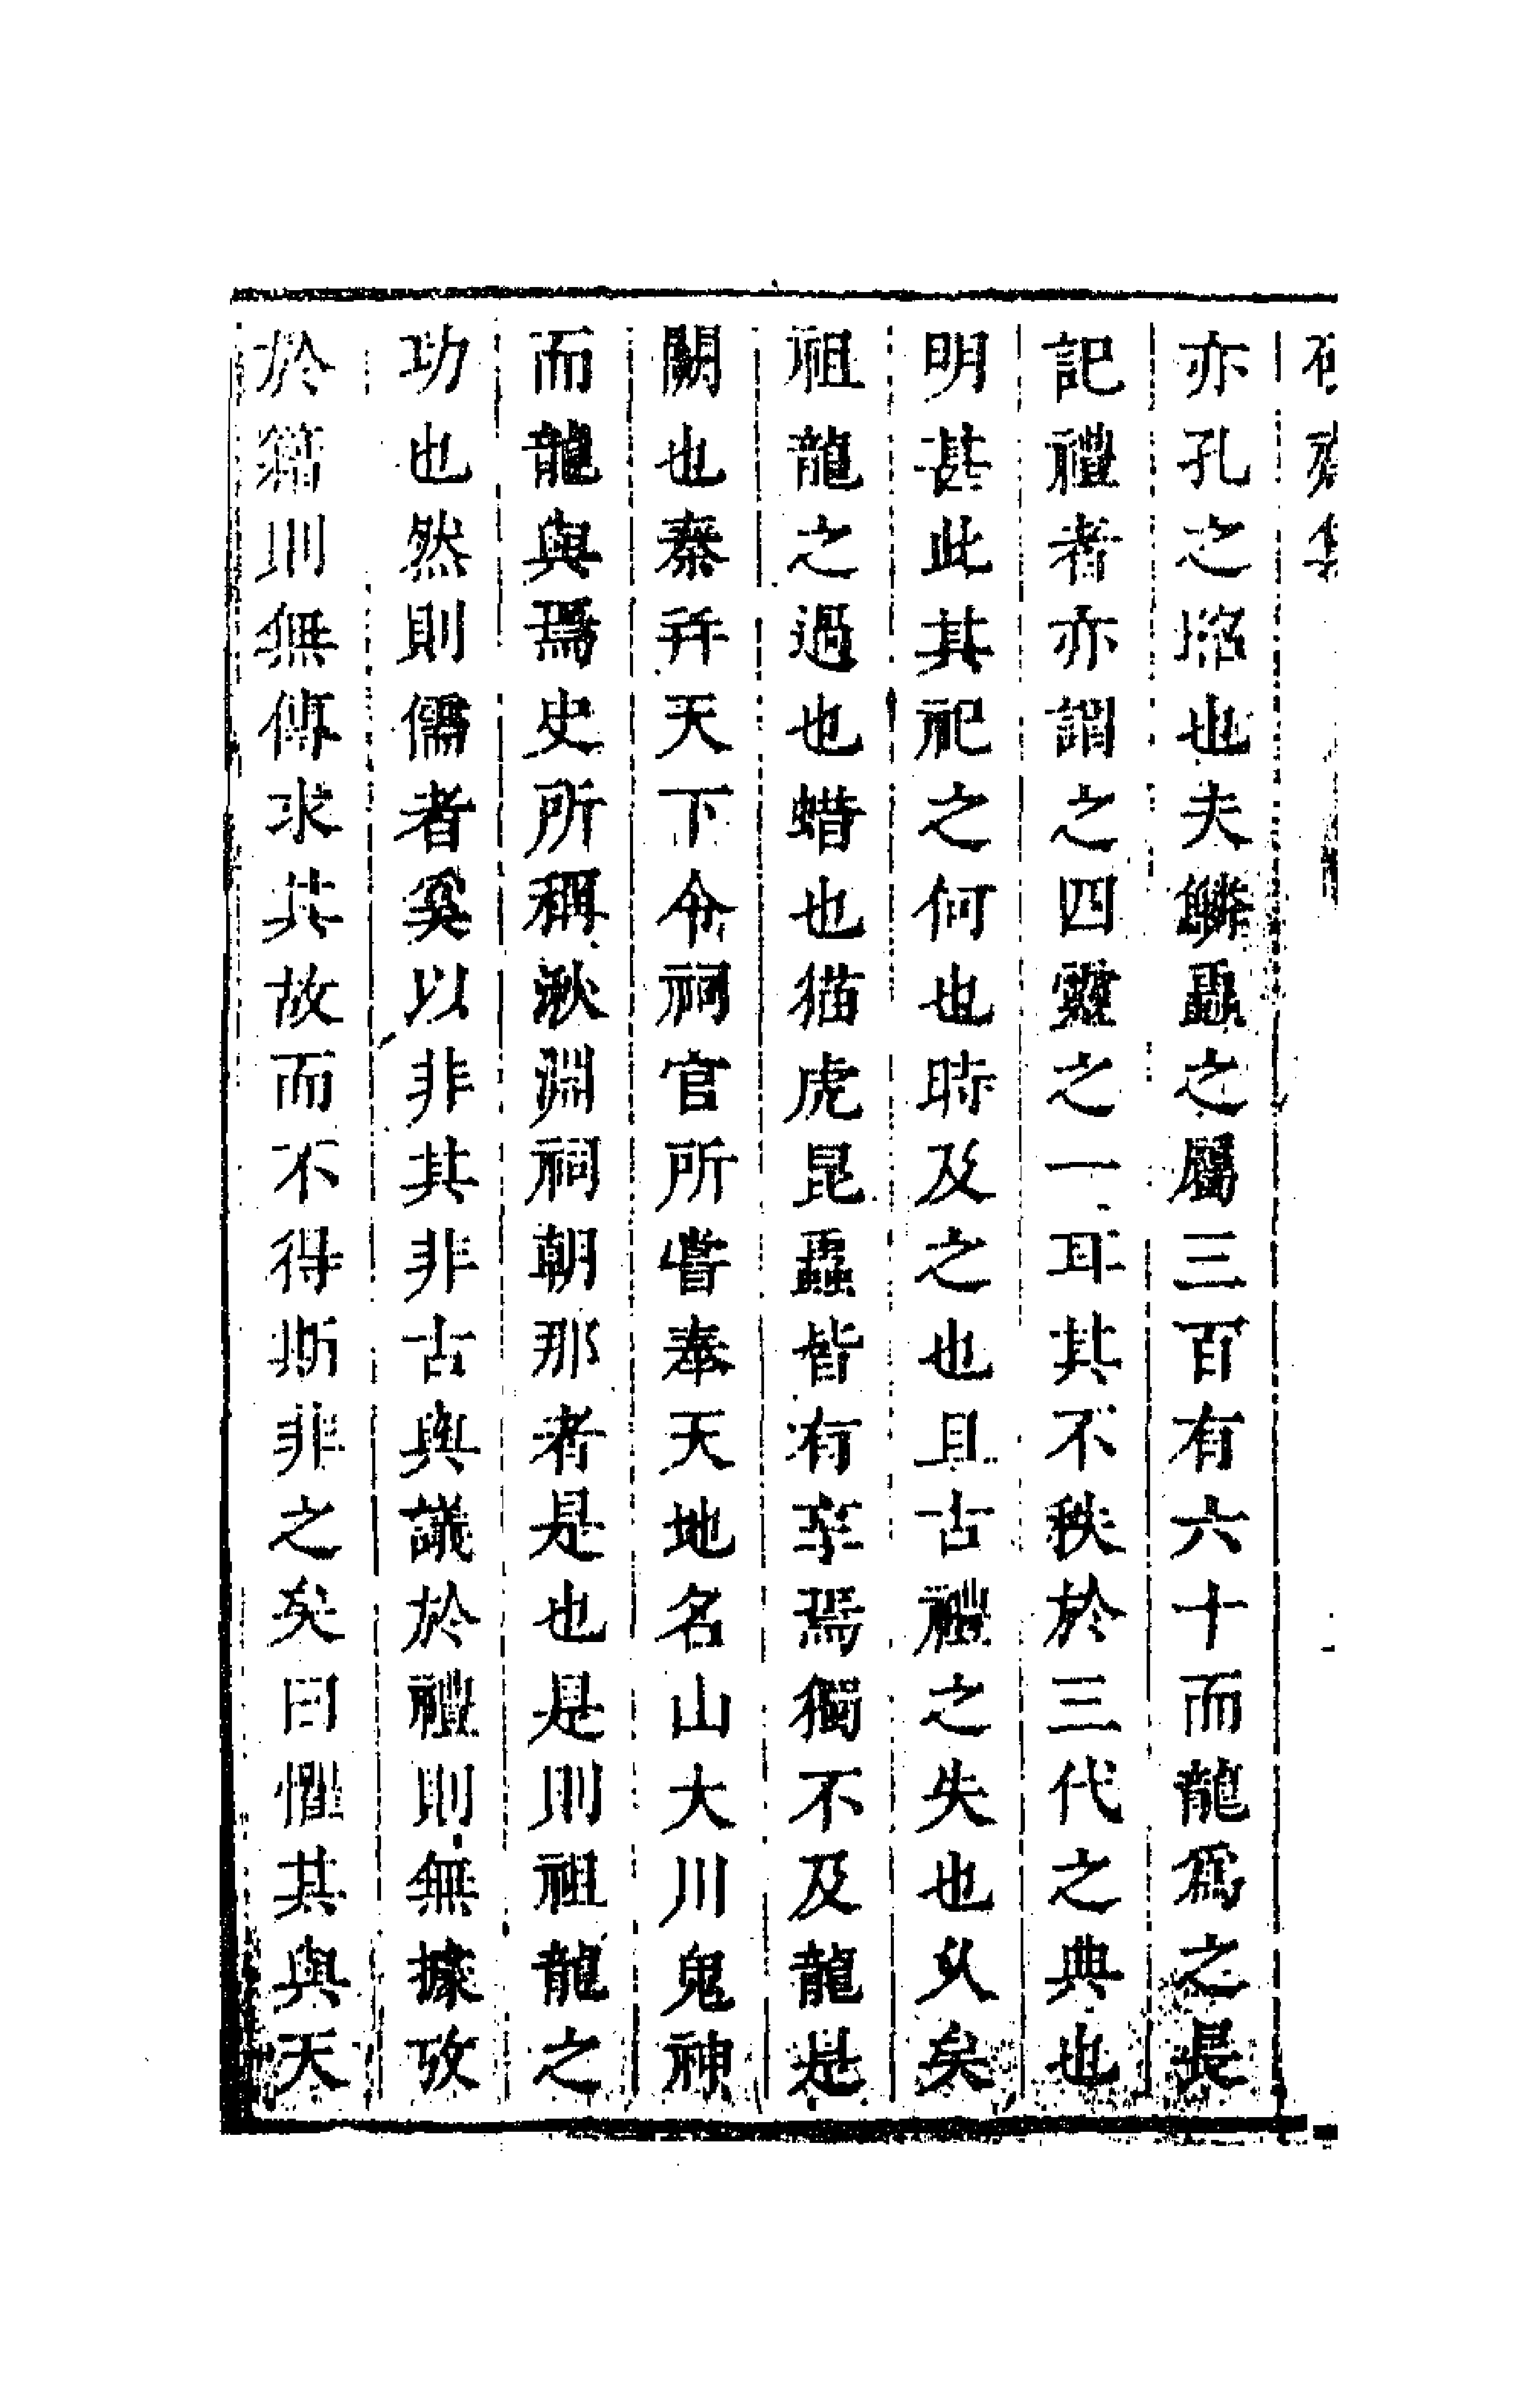 亦孔之昭也夫鱗蟲之屬三百有六十而龍爲之長
記禮者亦謂之四靈之一耳其不秩於三代之典也
明甚此其祀之何也時及之也且古禮之失也久矣
祖龍之過也蜡也猫虎昆蟲皆有享焉獨不及龍是
闕也秦幷天下令祠官所嘗奉天地名山大川鬼神
而龍與焉史所稱湫淵祠朝那者是也是則祖龍之
功也然則儒者奚以非其非古與議於禮則無據攷
於籍則無傳求其故而不得斯非之矣曰懼其與天